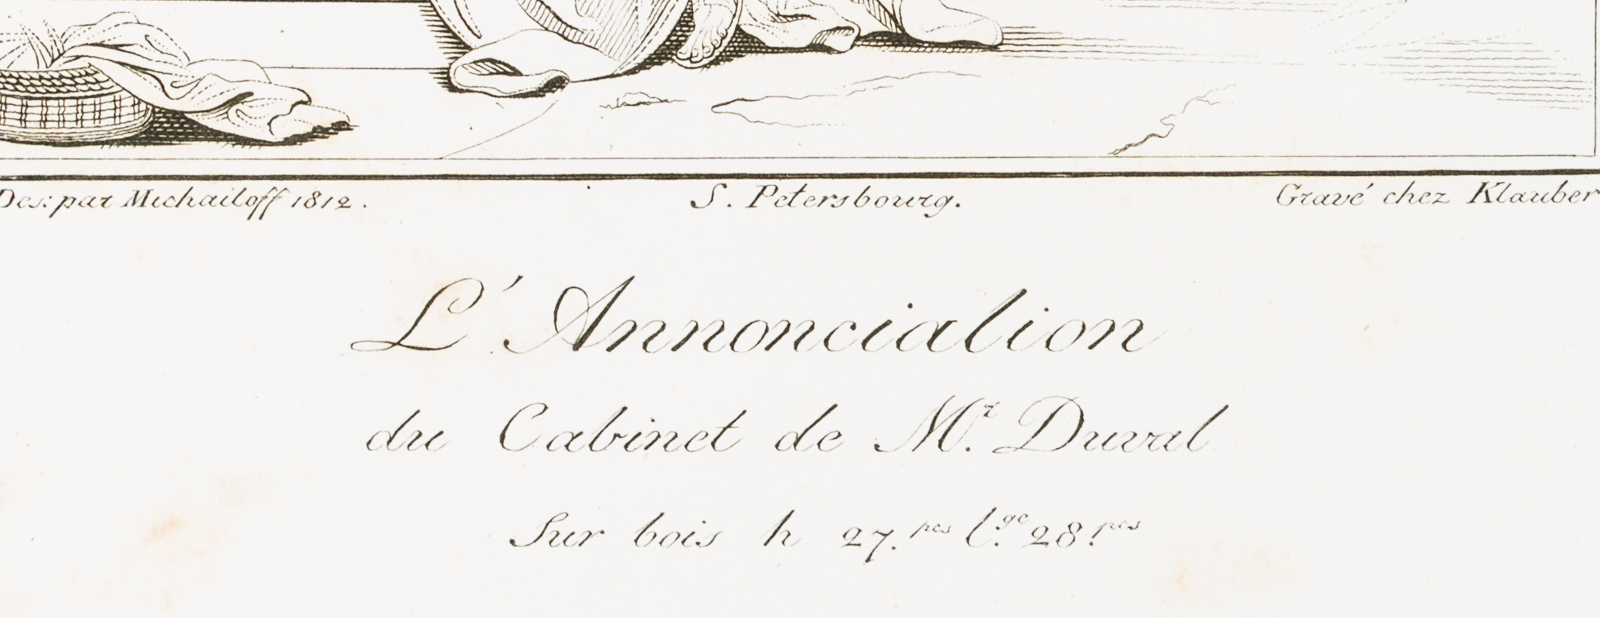 Des: par Michailoff 1812. S. Petersbourg. Gravé chez Klauber
L'Annonciation
du Cabinet de Mr. Duval
Sur bois h 27. pces l.ge 28. pces